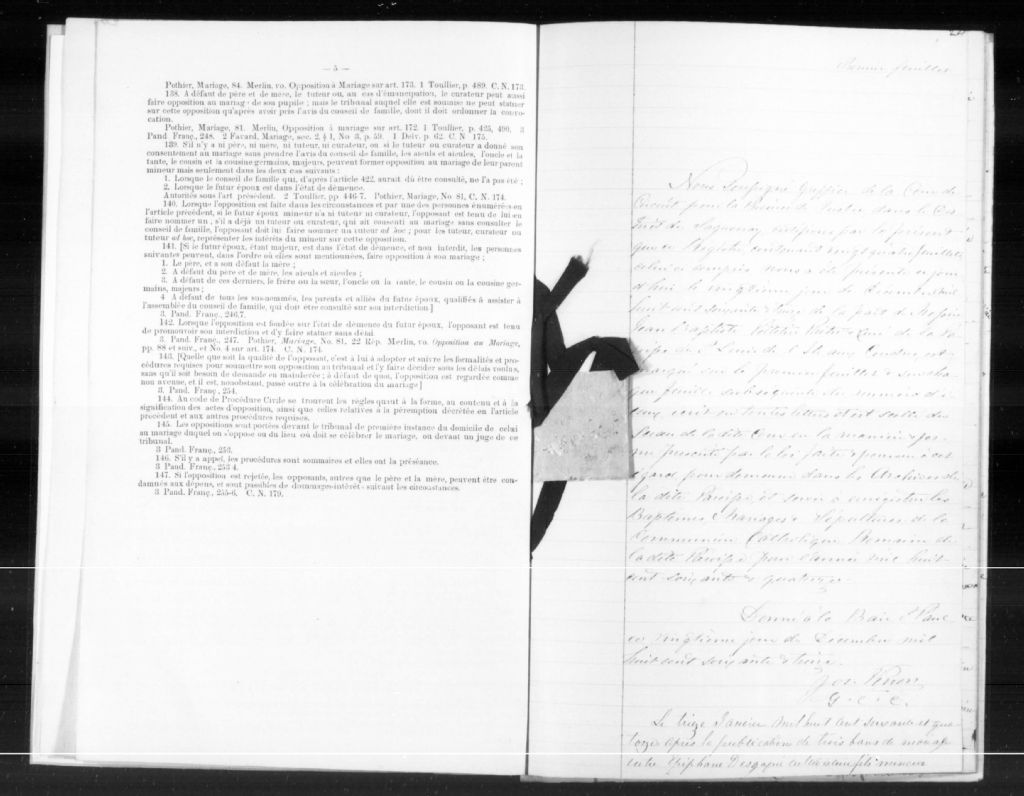 — 5 —
Pothier, Mariage, 84. Merlin, vo. Opposition à Mariage sur art. 173. 1 Toullier, p. 489. C. N. 173.
138. A défaut de père et de mère, le tuteur ou, au cas d'émancipation, le curateur peut aussi
faire opposition au mariage de son pupile ; mais le tribunal auquel elle est soumise ne peut statuer
sur cette opposition qu'après avoir pris l'avis du conseil de famille, dont il doit ordonner la convo-
cation.
Pothier, Mariage, 81. Merlin, Opposition à mariage sur art. 172. 1 Toullier, p. 425, 490. 3
Pand. Franç., 248. 2 Favard, Mariage, sec. 2, § 1, No 3, p. 59. 1 Delv. p. 62. C. N 175.
139. S'il n'y a ni père, ni mère, ni tuteur, ni curateur, ou si le tuteur ou curateur a donné son
consentement au mariage sans prendre l'avis du conseil de famille, les aïeuls et aïeules, l'oncle et la
tante, le cousin et la cousine germains, majeurs, peuvent former opposition au mariage de leur parent
mineur mais seulement dans les deux cas suivants :
1. Lorsque le conseil de famille qui, d'après l'article 422, aurait dû être consulté, ne l'a pas été ;
2. Lorsque le futur époux est dans l'état de démence.
Autorités sous l'art précédent. 2 Toullier, pp 446-7. Pothier, Mariage, No 81, C. N. 174.
140. Lorsque l'opposition est faite dans les circonstances et par une des personnes énumérées en
l'article précédent, si le futur époux mineur n'a ni tuteur ni curateur, l'opposant est tenu de lui en
faire nommer un ; s'il a déjà un tuteur ou curateur, qui ait consenti au mariage sans consulter le
conseil de famille, l'opposant doit lui faire nommer un tuteur ad hoc ; pour les tuteur, curateur ou
tuteur ad hoc, représenter les intérêts du mineur sur cette opposition.
141. [Si le futur époux, étant majeur, est dans l'état de démence, et non interdit, les personnes
suivantes peuvent, dans l'ordre où elles sont mentionnées, faire opposition à son mariage ;
1. Le père, et a son défaut la mère ;
2. A défaut du père et de mère, les aïeuls et aïeules ;
3. A défaut de ces derniers, le frère ou la sœur, l'oncle ou la tante, le cousin ou la cousine ger-
mains, majeurs ;
4 A défaut de tous les sus-nommés, les parents et alliés du futur époux, qualifiés à assister à
l'assemblée du conseil de famille, qui doit être consulté sur son interdiction.]
3. Pand. Franç., 246,7.
142. Lorsque l'opposition est fondée sur l'état de démence du futur époux, l'opposant est tenu
de promouvoir son interdiction et d'y faire statuer sans délai
3. Pand. Franç., 247. Pothier, Mariage, No. 81, 22 Rép. Merlin, vo. Opposition au Mariage,
pp. 88 et suiv., et No. 4 sur art. 174. C. N. 174.
143. [Quelle que soit la qualité de l'opposant, c'est à lui à adopter et suivre les formalités et pro-
cédures requises pour soumettre son opposition au tribunal et l'y faire décider sous les délais voulus,
sans qu'il soit besoin de demande en mainlevée ; à défaut de quoi, l'opposition est regardée comme
non avenue, et il est, nonobstant, passé outre à la célébration du mariage]
3. Pand. Franç., 254.
144. Au code de Procédure Civile se trouvent les règles quant à la forme, au contenu et à la
signification des actes d'opposition, ainsi que celles relatives à la péremption décrétée en l'article
précédent et aux autres procédures requises.
145. Les oppositions sont portées devant le tribunal de première instance du domicile de celui
au mariage duquel on s'oppose ou du lieu où doit se célébrer le mariage, ou devant un juge de ce
tribunal.
3 Pand. Franç., 253.
146. S'il y a appel, les procédures sont sommaires et elles ont la préséance.
3 Pand. Franç., 253 4.
147. Si l'opposition est rejetée, les opposants, autres que le père et la mère, peuvent être con-
damnés aux dépens, et sont passibles de dommages-intérêt suivant les circonstances.
3 Pand. Franç., 255-6. C. N. 179.
Premier feuillet
Nous Soussigné Greffier de la Cour de
Circuit pour la dans le Dis
trict de Saguenay, par le présent
que ce Registre contenant vingt quatre feuillets
nous a été présenté ce jour
d'hui le vingtième jour de Décembre mil
huit cent soixante treize de la part de Messire
Jean Baptiste Curé de la
St Louis de l'Isle aux Coudres et
marqué sur le premier feuillet & sur cha
que feuillet subséquent du numéro d'i
celui, écrit en toutes lettres et est scellé du
sceau de la dite Cour en la manière & for
me prescrite par la loi
pour demeurer dans les Archives de
la dite Paroisse et servir à enregistrer les
Baptêmes Mariages & Sépultures de la
Communion Catholique Romaine de
la dite Paroisse pour l'année mil huit
cent soixante & quatorze.
Donné à la Baie St Paul
ce vingtième jour de Décembre mil
huit cent soixante & treize.
G. C. C.
Le treize Janvier mil huit cent soixante et qua-
torze après la publication de trois bans de mariage
entre Epiphane Desgagné cultivateur fils mineur